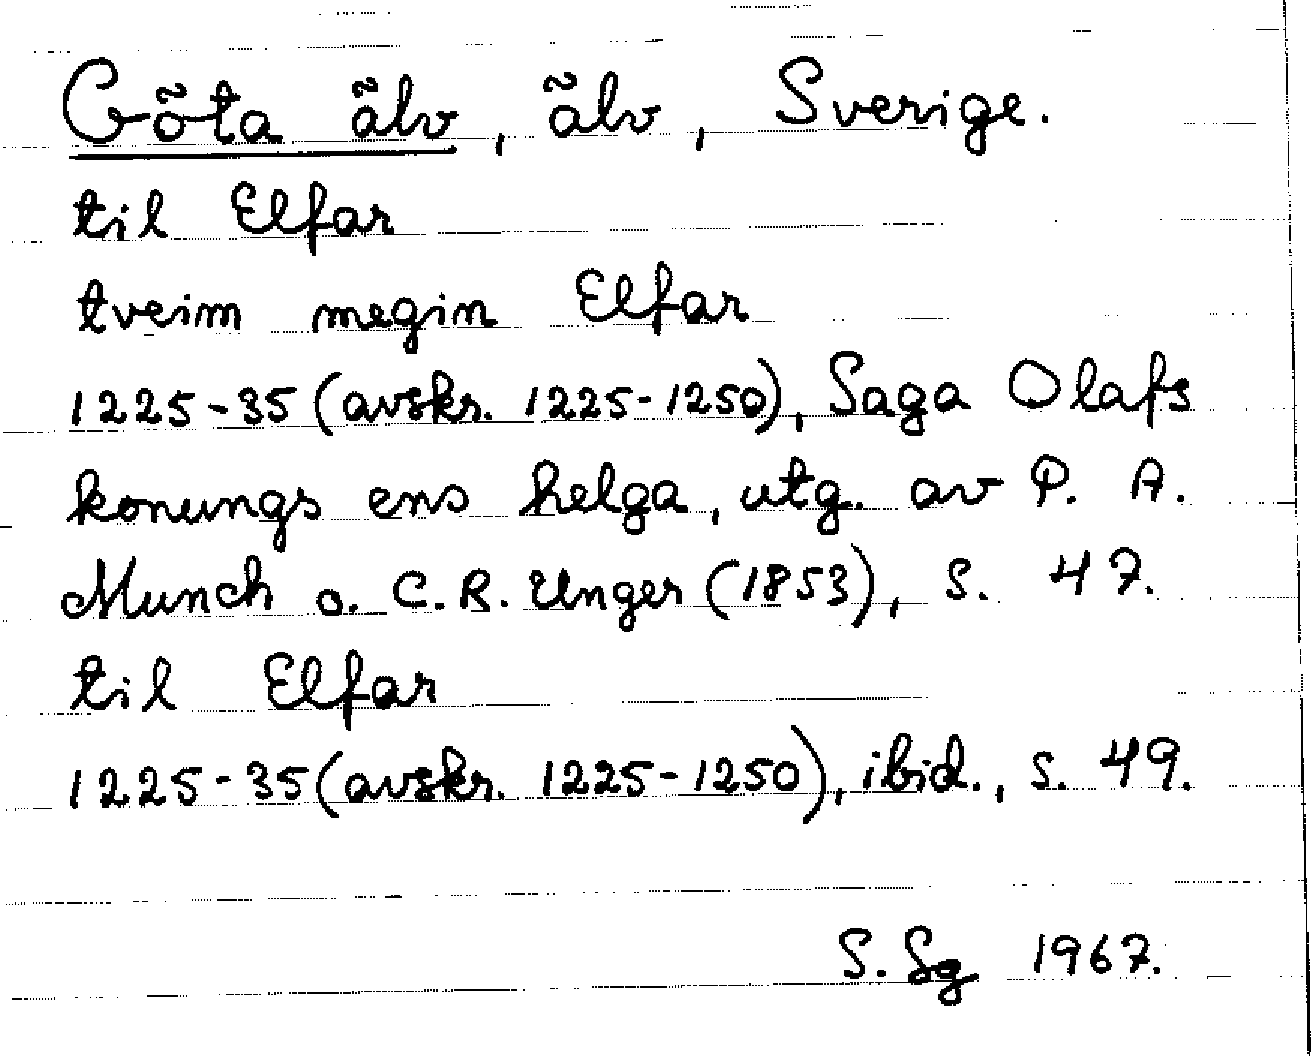 Göta älv, älv, Sverige.
til Elfar
tveim megin Elfar
1225-35 (avskr. 1225-1250), Saga Olafs
konungs ens helga, utg. av P. A.
Munch o. C. R. Unger (1853), S. 47.
til Elfar
1225-35 (avskr. 1225-1250), ibid., s. 49.
S. Sg 1967.